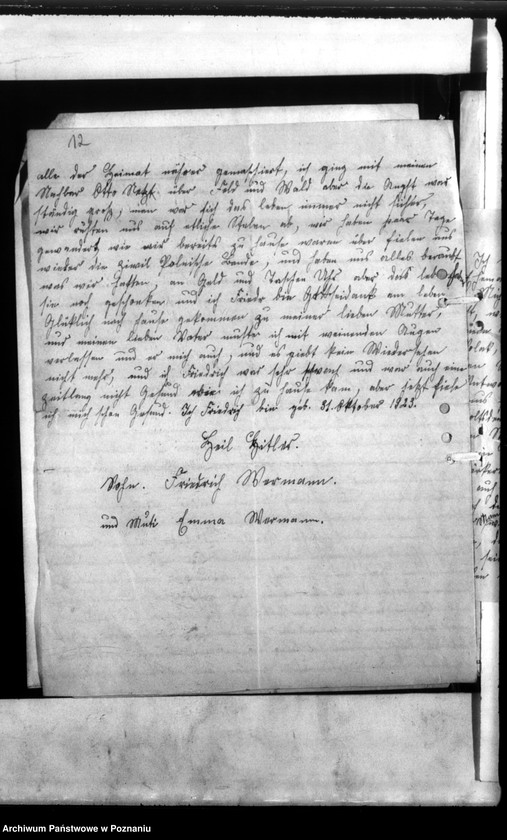 12
alle der Heimat näher gemarschiert, ich ging mit meinen
Nachbar Otto über Feld und Wald aber die Angst war
ständig groß, man war sich das leben immer nicht sicher,
wir ruhten uns auf etliche Stellen ab, wir haten zwei Tage
gewandert wie wir bereits zu hause waren über fielen uns
wieder die zivil Polnische Bande, und haben uns alles beraubt
was wir hatten, an Geld und Taschen Uhr aber das leben
sie noch geschenken und ich Friedr bin Gottseidank am leben
Glücklich nach hause gekommen zu meiner lieben Mutter,
und meinen lieben Vater mußte ich mit weinenden Augen
verlassen und er mich auch, und es giebt kein Wiedersehen
nicht mehr, und ich Friedrich war sehr und war auch eine
zeitlang nicht Gesund wie ich zu hause kam, aber jetzt fühle
ich mich schon Gesund. Ich Friedrich bin geb. 31. Oktober 1923.
Heil Hitler.
Sohn. Friedrich Wermann.
und Muti Emma Wermann.
Archiwum Państwowe w Poznaniu